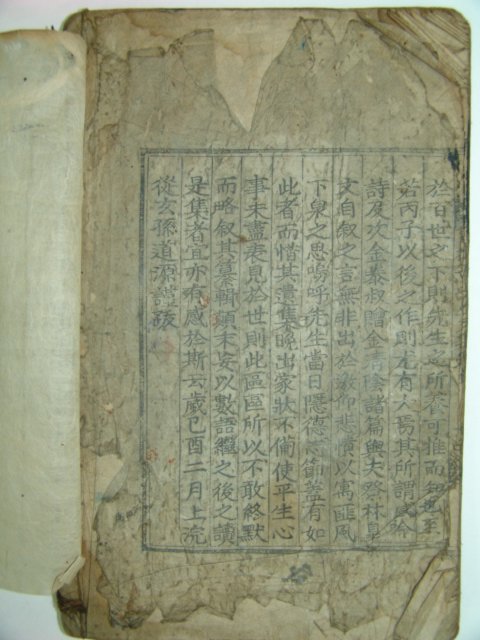 於百世之下則先生之所養可推而知也至
若丙子以後之作則尤有大焉其所謂感吟
詩及次金泰叔贈金淸陰諸篇與夫祭林皐
文自叙之言無非出於敬仰悲憤以寓匪風
下泉之思嗚呼先生當日隱德志節蓋有如
此者而惜其遺集晩出家狀不備使平生心
事未盡表見於世則此區區所以不敢終默
而略叙其纂輯顚末妄以數語繼之後之讀
是集者宜亦有感於斯云歲己酉二月上浣
從玄孫道源謹跋